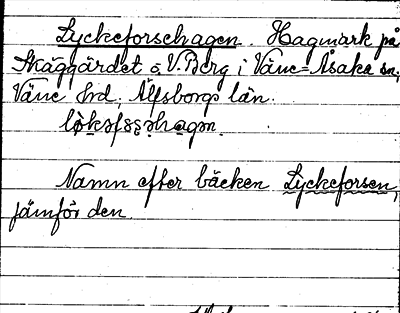 Lyckeforsehagen. Hagmark på
Skäggärdet o. V. Berg i Väne-Åsaka sn,
Väne hd, Älfsborgs län.
Namn efter bäcken Lyckeforsen,
jämför den